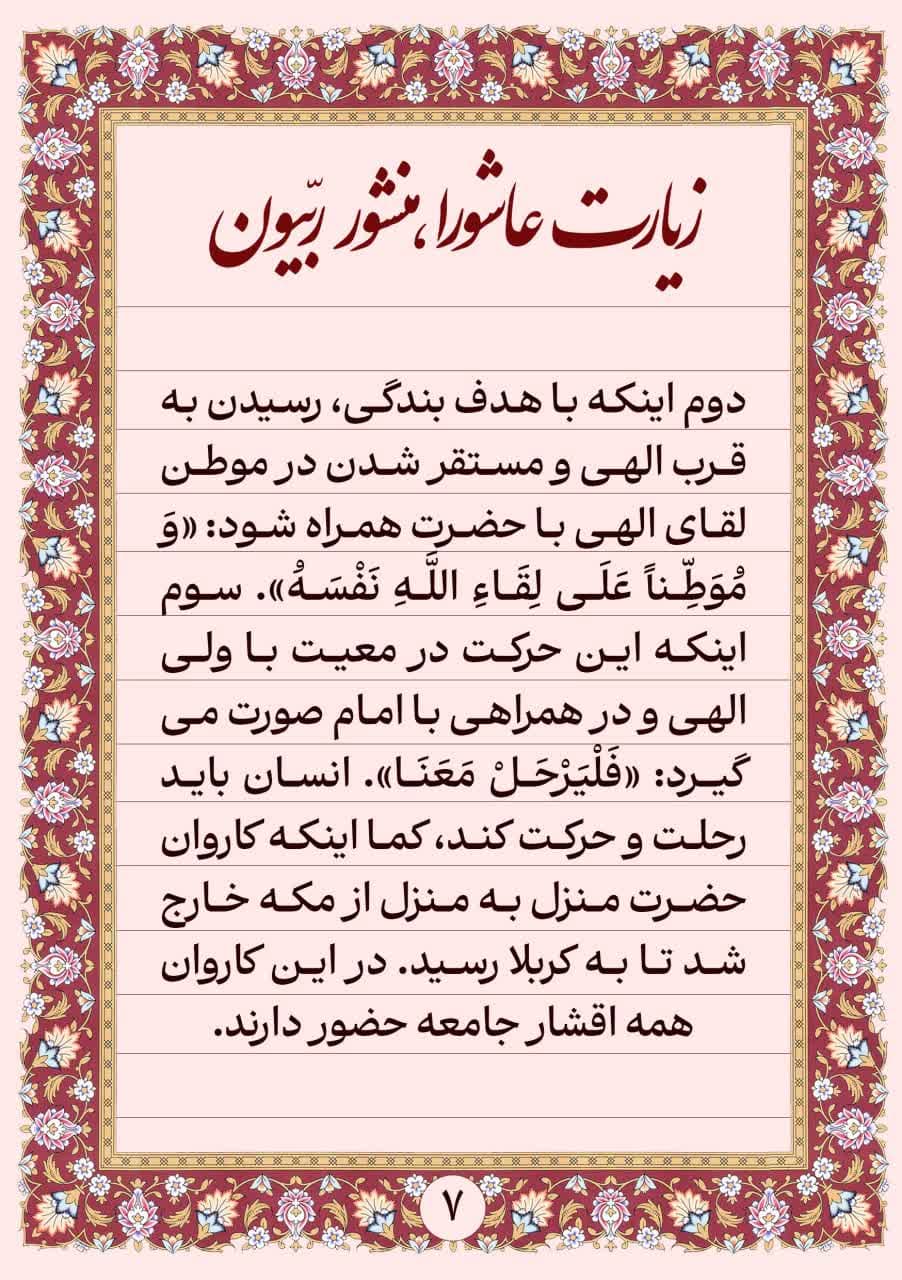 زیارت عاشورا، منشور ربّیون
دوم اینکه با هدف بندگی، رسیدن به
قرب الهی و مستقر شدن در موطن
لقای الهی با حضرت همراه شود: «وَ
مُوَطِّناً عَلَی لِقَاءِ اللَّهِ نَفْسَهُ». سوم
اینکه این حرکت در معیت با ولی
الهی و در همراهی با امام صورت می
گیرد: «فَلْیَرْحَلْ مَعَنَا». انسان باید
رحلت و حرکت کند، کما اینکه کاروان
حضرت منزل به منزل از مکه خارج
شد تا به کربلا رسید. در این کاروان
همه اقشار جامعه حضور دارند.
۷